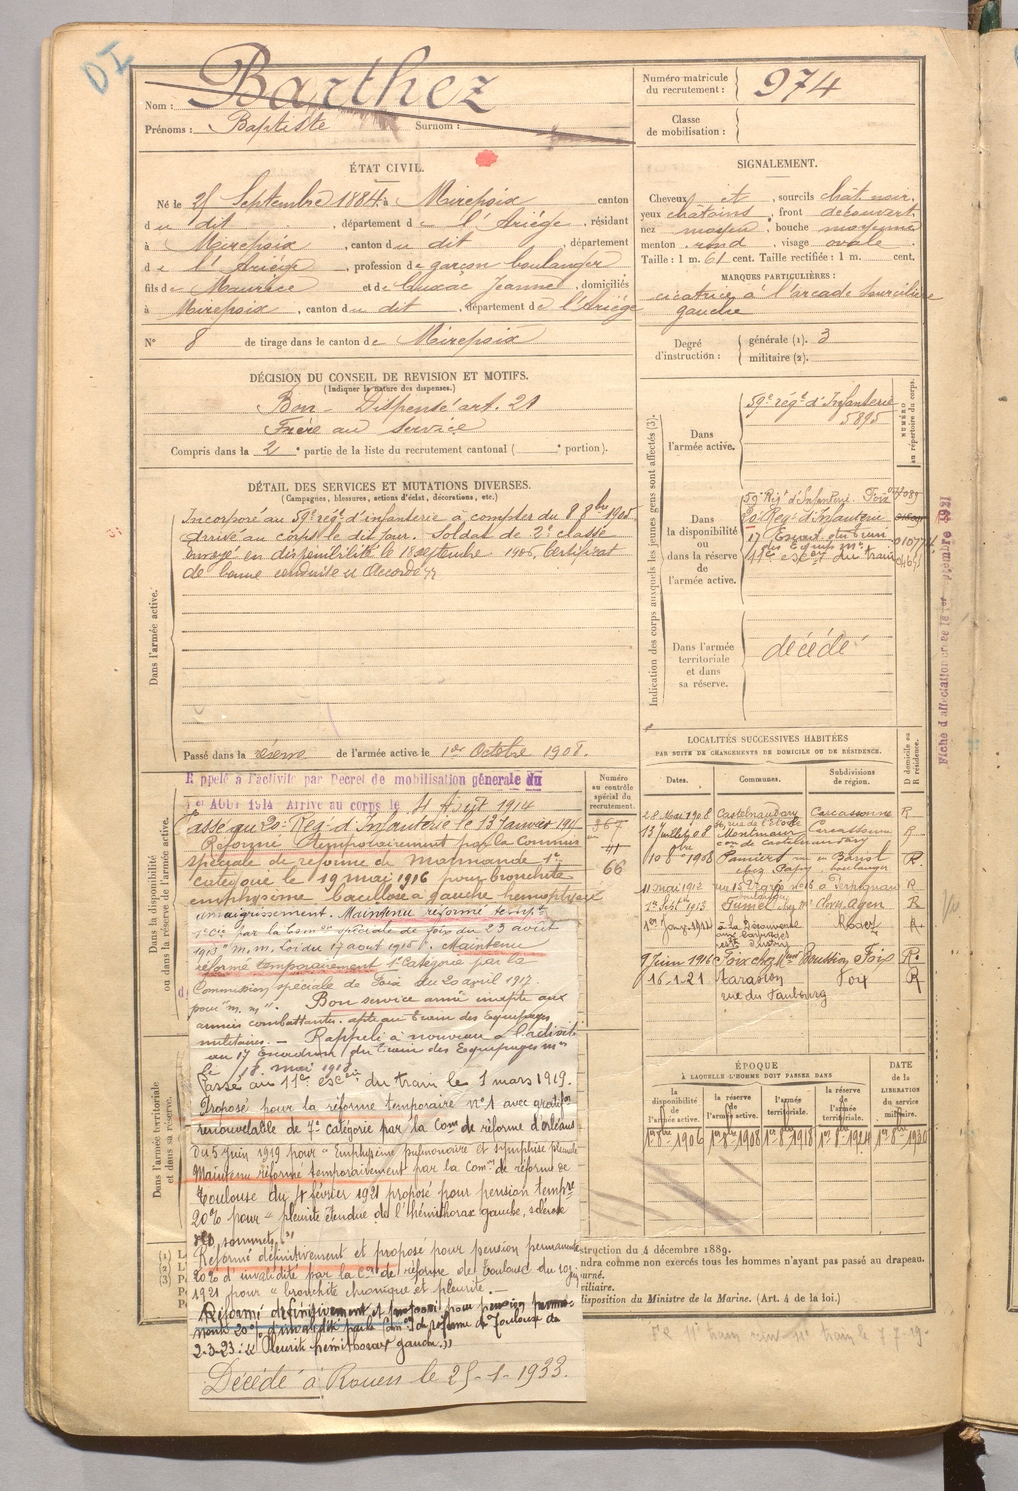 DI
Nom : Barthez
Prénoms : Baptiste Surnom :
Numéro matricule du recrutement : 974
Classe de mobilisation :
ÉTAT CIVIL.
Né le 25 Septembre 1884 à Mirepoix canton
du dit, département de l'Ariège, résidant
à Mirepoix, canton du dit, département
de l'Ariège, profession de garçon boulanger
fils de Maurice et de Cuxac Jeanne, domiciliés
à Mirepoix, canton du dit, département de l'Ariège
N° 8 de tirage dans le canton de Mirepoix
SIGNALEMENT.
Cheveux et, sourcils chât. noir.
yeux chatains, front découvert
nez moyen, bouche moyenne
menton rond, visage ovale
Taille : 1 m. 61 cent. Taille rectifiée : 1 m. cent.
MARQUES PARTICULIÈRES :
cicatrice à l'arcade sourcilière
gauche
Degré d'instruction : générale (1). 3
militaire (2).
DÉCISION DU CONSEIL DE REVISION ET MOTIFS.
(Indiquer la nature des dispenses.)
Bon - Dispensé art. 21
Frère au service
Compris dans la 2e partie de la liste du recrutement cantonal ( e portion).
DÉTAIL DES SERVICES ET MUTATIONS DIVERSES.
(Campagnes, blessures, actions d'éclat, décorations, etc.)
Dans l'armée active.
Incorporé au 59e régt d'infanterie à compter du 8 8bre 1905
arrivé au corps le dit jour. Soldat de 2e classe
envoyé en disponibilité le 18 septembre 1906, Certificat
de bonne conduite "Accordé"
Passé dans la réserve de l'armée active le 1er Octobre 1908.
Indication des corps auxquels les jeunes gens sont affectés (3).
NUMÉRO au répertoire du corps.
Dans l'armée active.
59e régt d'Infanterie
5895
Dans la disponibilité ou dans la réserve de l'armée active.
59e Régt d'Infanterie Foix
20e Régt d'Infanterie
17 Escad. du Train
des Equip. Mres
11e escon du train
Dans l'armée territoriale et dans sa réserve.
décédé
Fiche d'affectation
LOCALITÉS SUCCESSIVES HABITÉES
PAR SUITE DE CHANGEMENTS DE DOMICILE OU DE RÉSIDENCE.
Dates. Communes. Subdivisions de région. D domicile ou R résidence.
28 Mai 1908 Castelnaudary Carcassonne R
13 Juillet 08 Montmaur Carcassonne R
con de Castelnaudary
Pamiers
chez Papy, boulanger
11 mai 1912 Perpignan R
1er Sept 1913 Fumel Agen R
9 Juin 1916 Foix chez Foix R
16-1-21 Tarascon Foix R
rue du Faubourg
Dans la disponibilité ou dans la réserve de l'armée active.
Numéro au contrôle spécial du recrutement.
367
66
Rappelé à l'activité par Décret de mobilisation générale du
1er AOUT 1914 Arrivé au corps le 4 Août 1914
Passé au 20e Régt d'Infanterie le 13 Janvier
Réformé temporairement par la Commis
spéciale de réforme de Marmande 1e
catégorie le 19 mai 1916 pour bronchite
emphysème bacillose à gauche hemoptysie
amaigrissement. Maintenu réformé tempre
1e cie par la Comon spéciale de Foix du 23 août
1916 "m. m." Loi du 17 aout 1915. Maintenu
réformé temporairement 1e Catégorie par la
Commission spéciale de Foix du 20 avril 1917
pour "m. m". Bon service armé inapte aux
armes combattantes. apte au train des Equipages
militaires. — Rappelé à nouveau à l'activité
au 17 Escadron du train des Equipages mres
le 18 mai 1918
Passé au 11e escon du train le 1 mars 1919.
Proposé pour la réforme temporaire n°1 avec gratifon
renouvelable de 7e catégorie par la Comon de réforme d'Orléans
du 5 juin 1919 pour "Emphysème pulmonaire et symphyse pleurale
Maintenu réformé temporairement par la Comon de réforme de
Toulouse du 4 février 1921 proposé pour pension tempre
20% pour "pleurite étendue de l'hémithorax gauche, sclérose
des sommets."
Réformé définitivement et proposé pour pension permanente
20% d'invalidité par la Con de réforme de Toulouse du
1921 pour "bronchite chronique et pleurite.
Réformé définitivement et proposé pour pension perma-
nente 20% d'invalidité par la Comon de réforme de Toulouse du
2-3-23 : "Pleurite hémithorax gauche."
Décédé à Rouen le 25-1-1933.
Dans l'armée territoriale et dans sa réserve.
ÉPOQUE
À LAQUELLE L'HOMME DOIT PASSER DANS
la disponibilité de l'armée active. la réserve de l'armée active. l'armée territoriale. la réserve de l'armée territoriale. DATE de la LIBÉRATION du service militaire.
1er 8bre 1906 1er 8bre 1908 1er 8 1918 1er 8 1924 1er 8 1930
struction du 4 décembre 1889.
ndra comme non exercés tous les hommes n'ayant pas passé au drapeau.
ourné.
xiliaire.
disposition du Ministre de la Marine. (Art. 4 de la loi.)